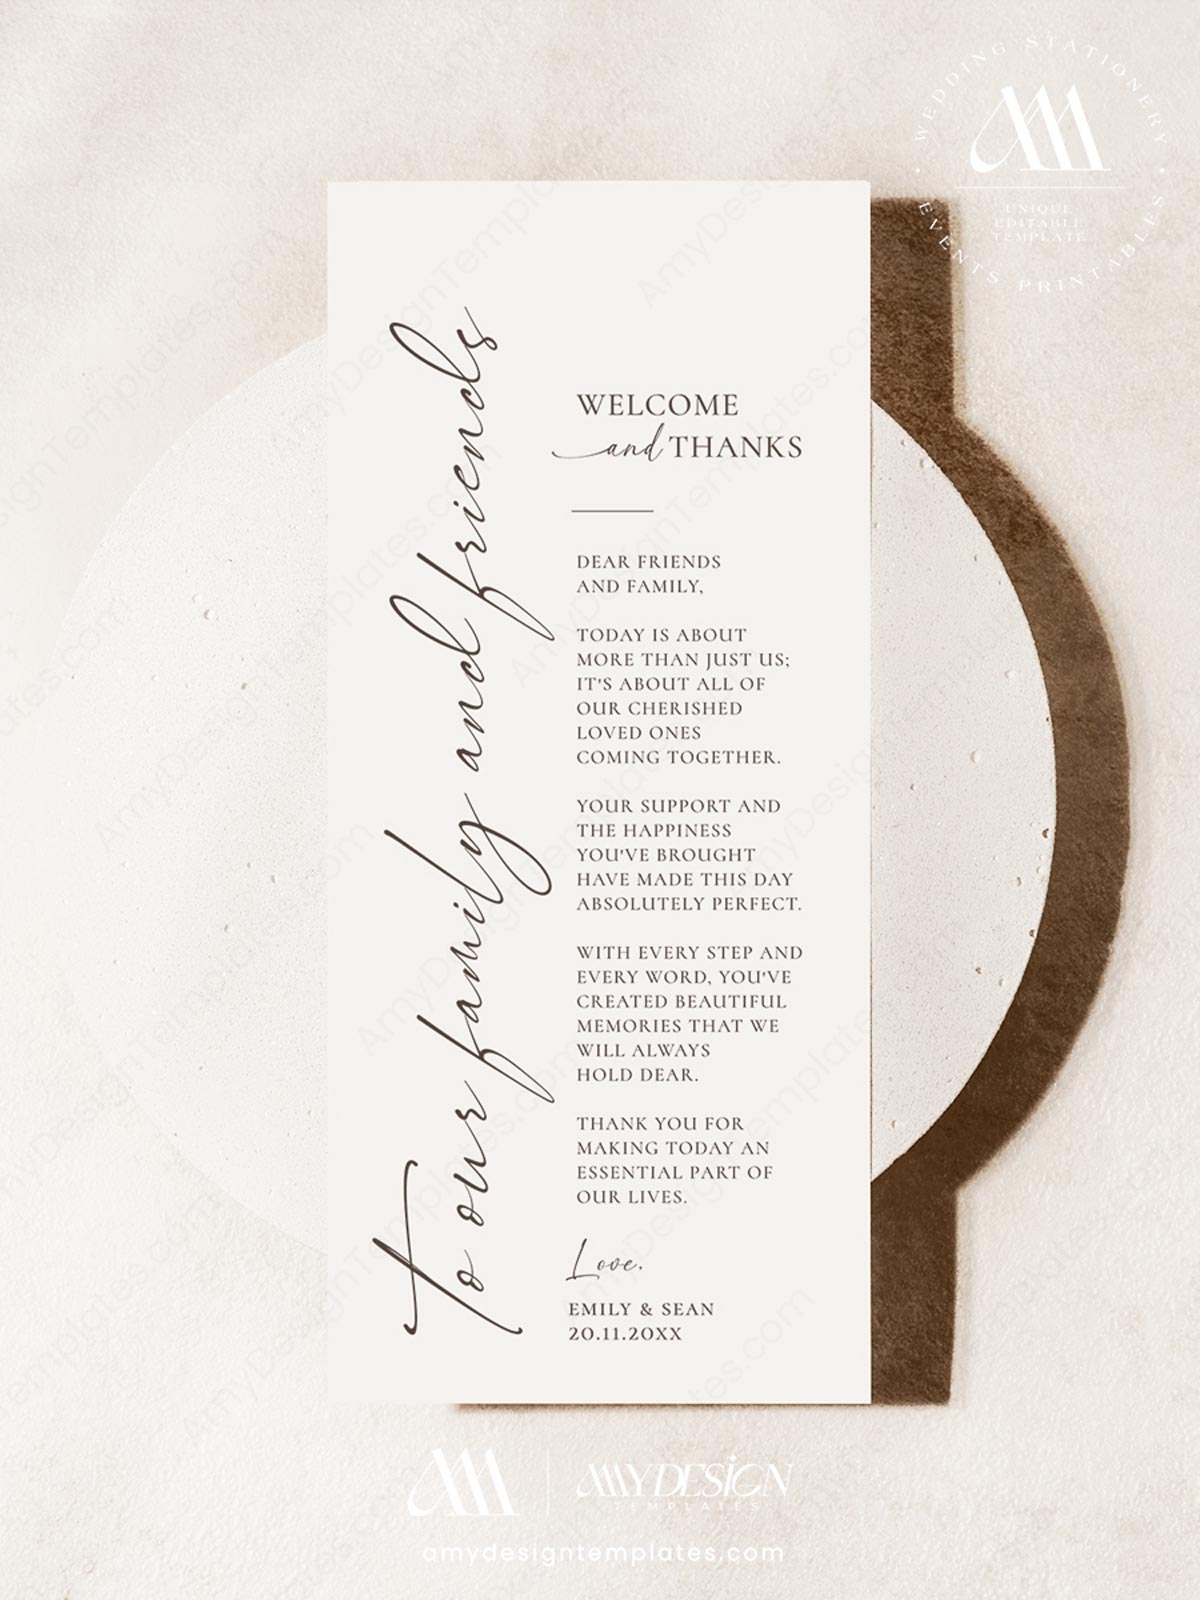 WEDDING STATIONERY
UNIQUE
EDITABLE
TEMPLATE
EVENTS PRINTABLES
To our family and friends
WELCOME
and THANKS
DEAR FRIENDS
AND FAMILY,
TODAY IS ABOUT
MORE THAN JUST US;
IT'S ABOUT ALL OF
OUR CHERISHED
LOVED ONES
COMING TOGETHER.
YOUR SUPPORT AND
THE HAPPINESS
YOU'VE BROUGHT
HAVE MADE THIS DAY
ABSOLUTELY PERFECT.
WITH EVERY STEP AND
EVERY WORD, YOU'VE
CREATED BEAUTIFUL
MEMORIES THAT WE
WILL ALWAYS
HOLD DEAR.
THANK YOU FOR
MAKING TODAY AN
ESSENTIAL PART OF
OUR LIVES.
Love,
EMILY & SEAN
20.11.20XX
AMYDESIGN
TEMPLATES
amydesigntemplates.com
AmyDesignTemplates.com